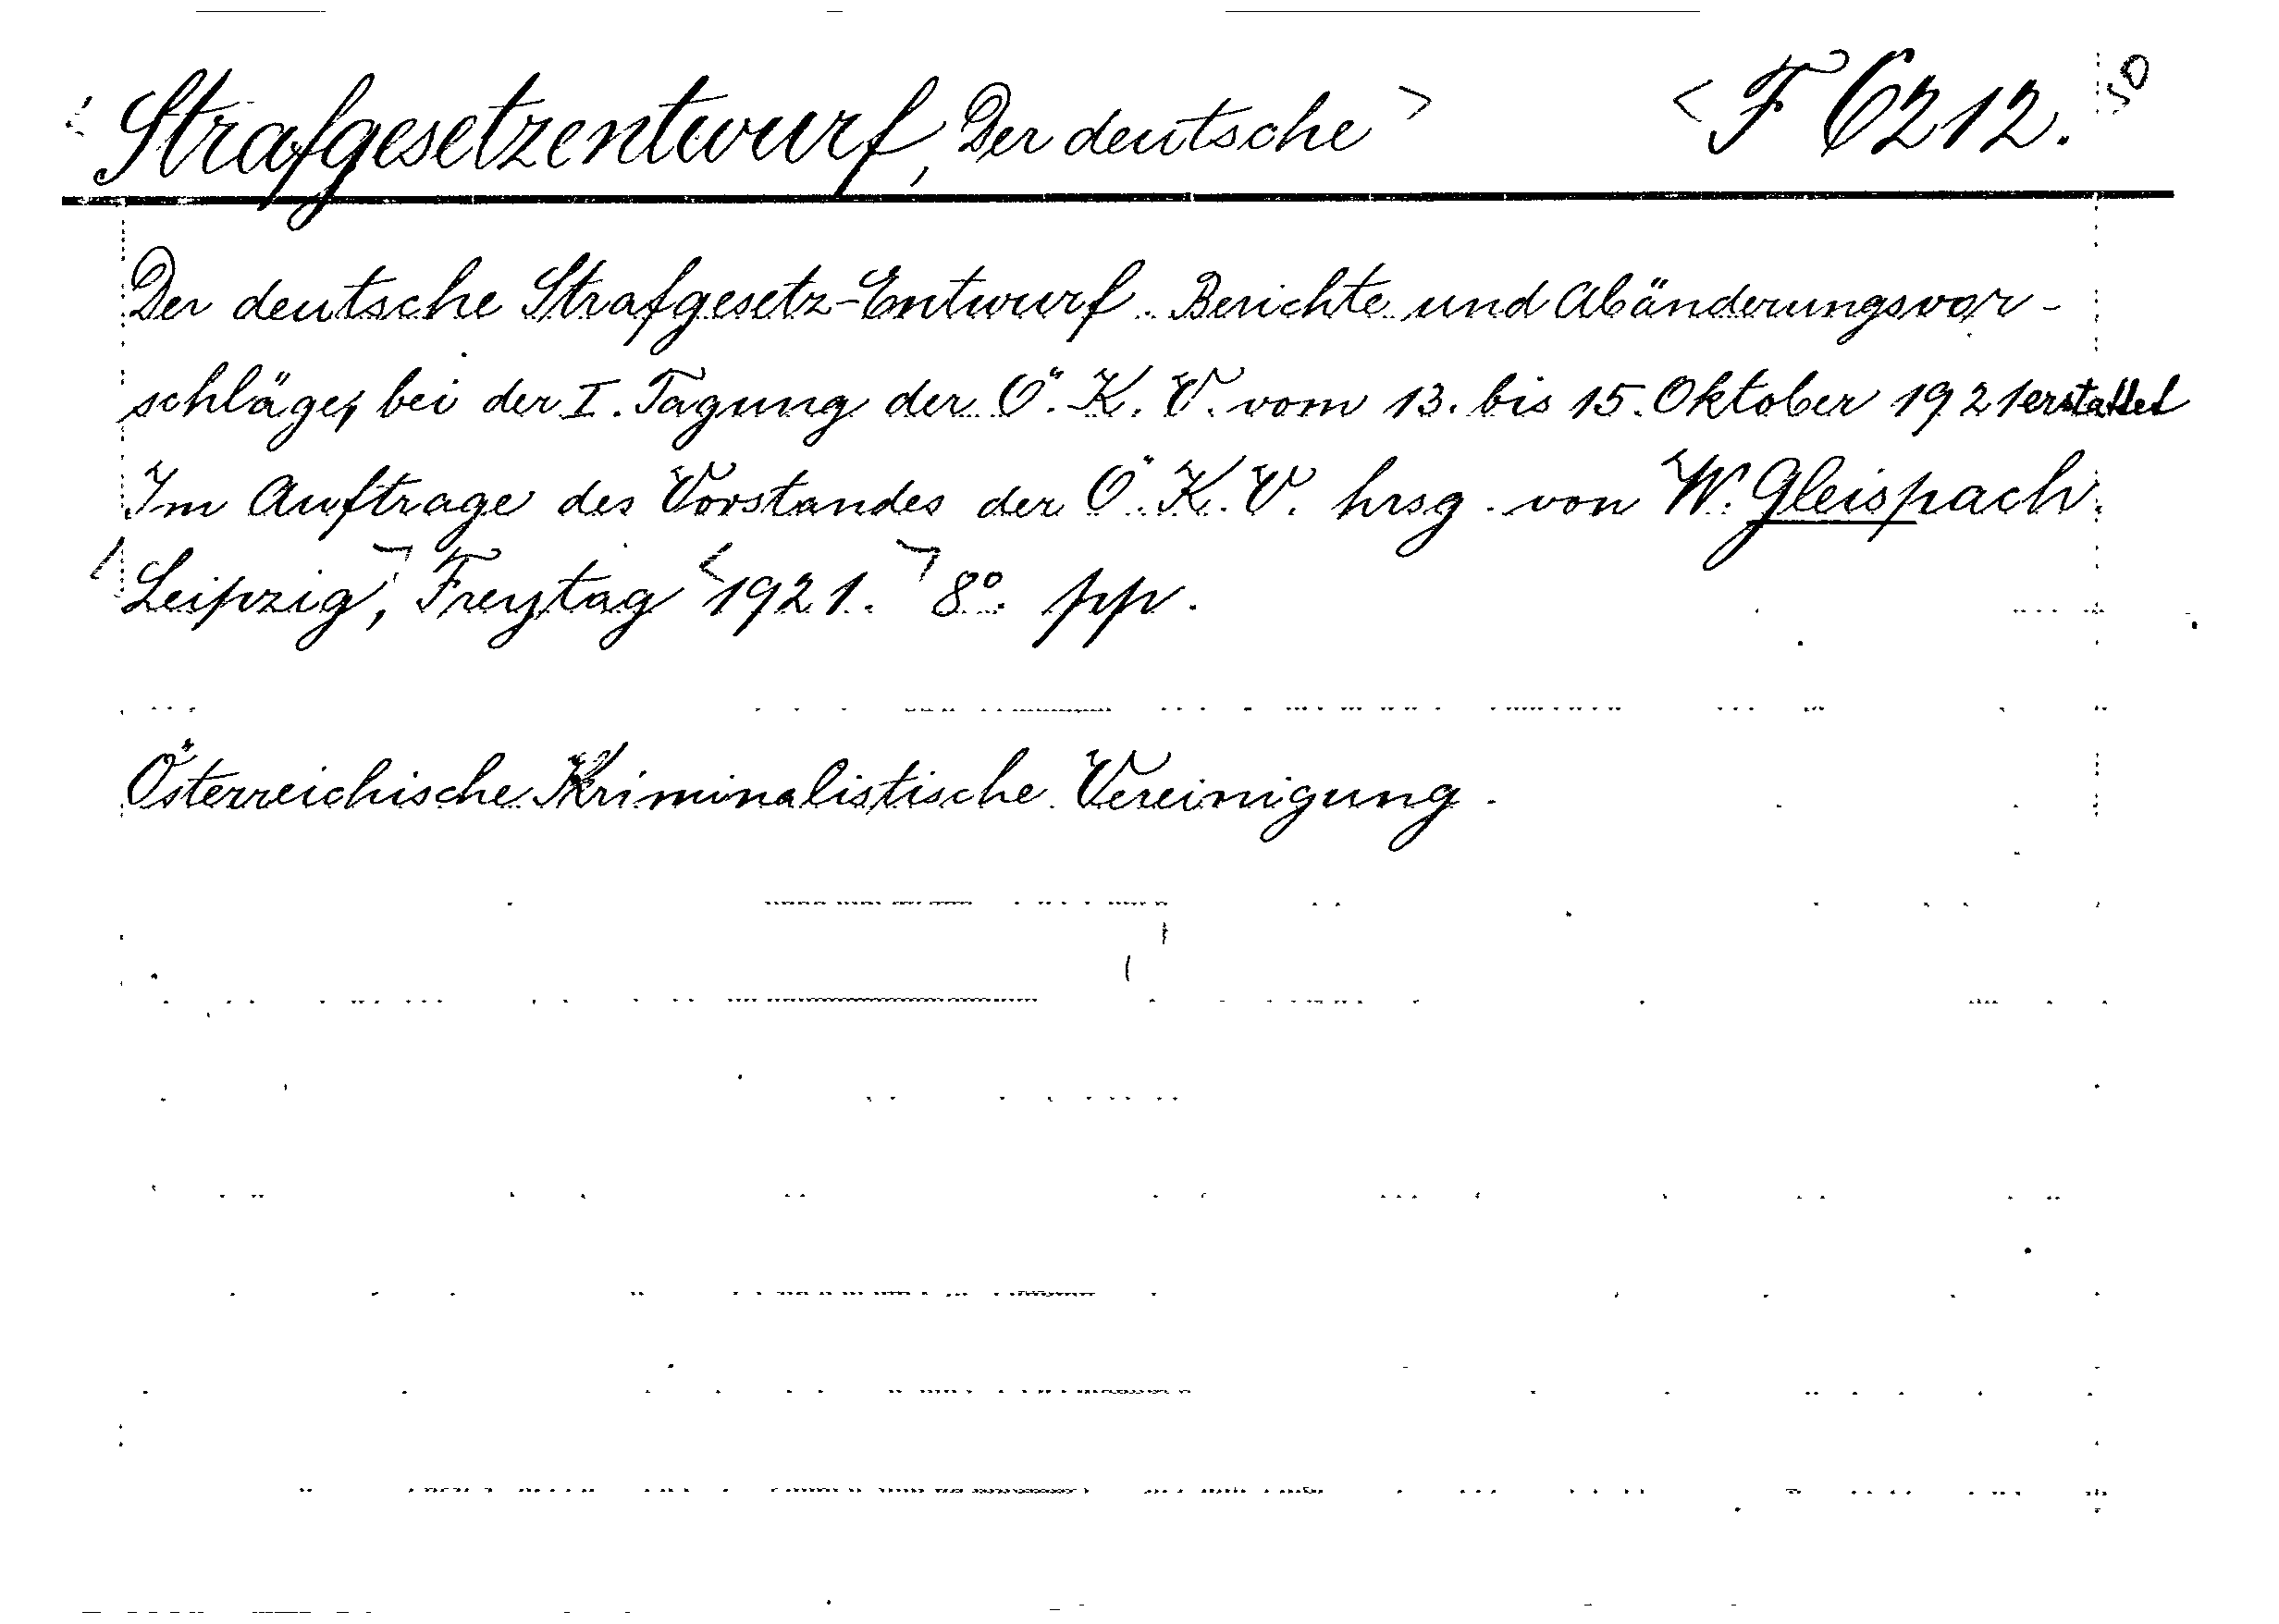 < Strafgesetzentwurf, Der deutsche > < F 6212. 50
Der deutsche Strafgesetz-Entwurf. Berichte und Abänderungsvor-
schläge, bei der I. Tagung der Ö. K. V. vom 13. bis 15. Oktober 1921 erstattet
Im Auftrage des Vorstandes der Ö. K. V. hrsg. von W. Gleispach.
< Leipzig, > Freytag < 1921. > 8° pp.
Österreichische Kriminalistische Vereinigung.